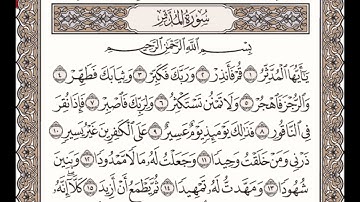 سُورَةُ المُدَّثِّرِ
بِسْمِ اللَّهِ الرَّحْمَٰنِ الرَّحِيمِ
يَا أَيُّهَا الْمُدَّثِّرُ ١ قُمْ فَأَنذِرْ ٢ وَرَبَّكَ فَكَبِّرْ ٣ وَثِيَابَكَ فَطَهِّرْ ٤
وَالرُّجْزَ فَاهْجُرْ ٥ وَلَا تَمْنُن تَسْتَكْثِرُ ٦ وَلِرَبِّكَ فَاصْبِرْ ٧ فَإِذَا نُقِرَ
فِي النَّاقُورِ ٨ فَذَٰلِكَ يَوْمَئِذٍ يَوْمٌ عَسِيرٌ ٩ عَلَى الْكَافِرِينَ غَيْرُ يَسِيرٍ ١٠
ذَرْنِي وَمَنْ خَلَقْتُ وَحِيدًا ١١ وَجَعَلْتُ لَهُ مَالًا مَّمْدُودًا ١٢ وَبَنِينَ
شُهُودًا ١٣ وَمَهَّدتُّ لَهُ تَمْهِيدًا ١٤ ثُمَّ يَطْمَعُ أَنْ أَزِيدَ ١٥ كَلَّا إِنَّهُ